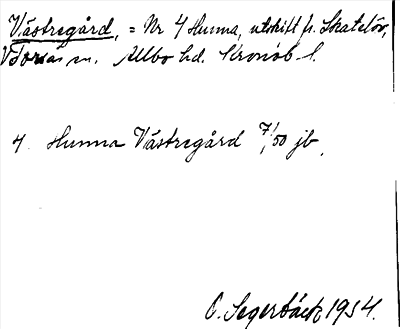 Västregård, = Nr 4 Hunna, utskift fr. Skatelöv,
V Torsås sn. Allbo hd. Kronob. l.
4. Hunna Västregård 7/1,50 jb.
O. Segerbäck 1954.